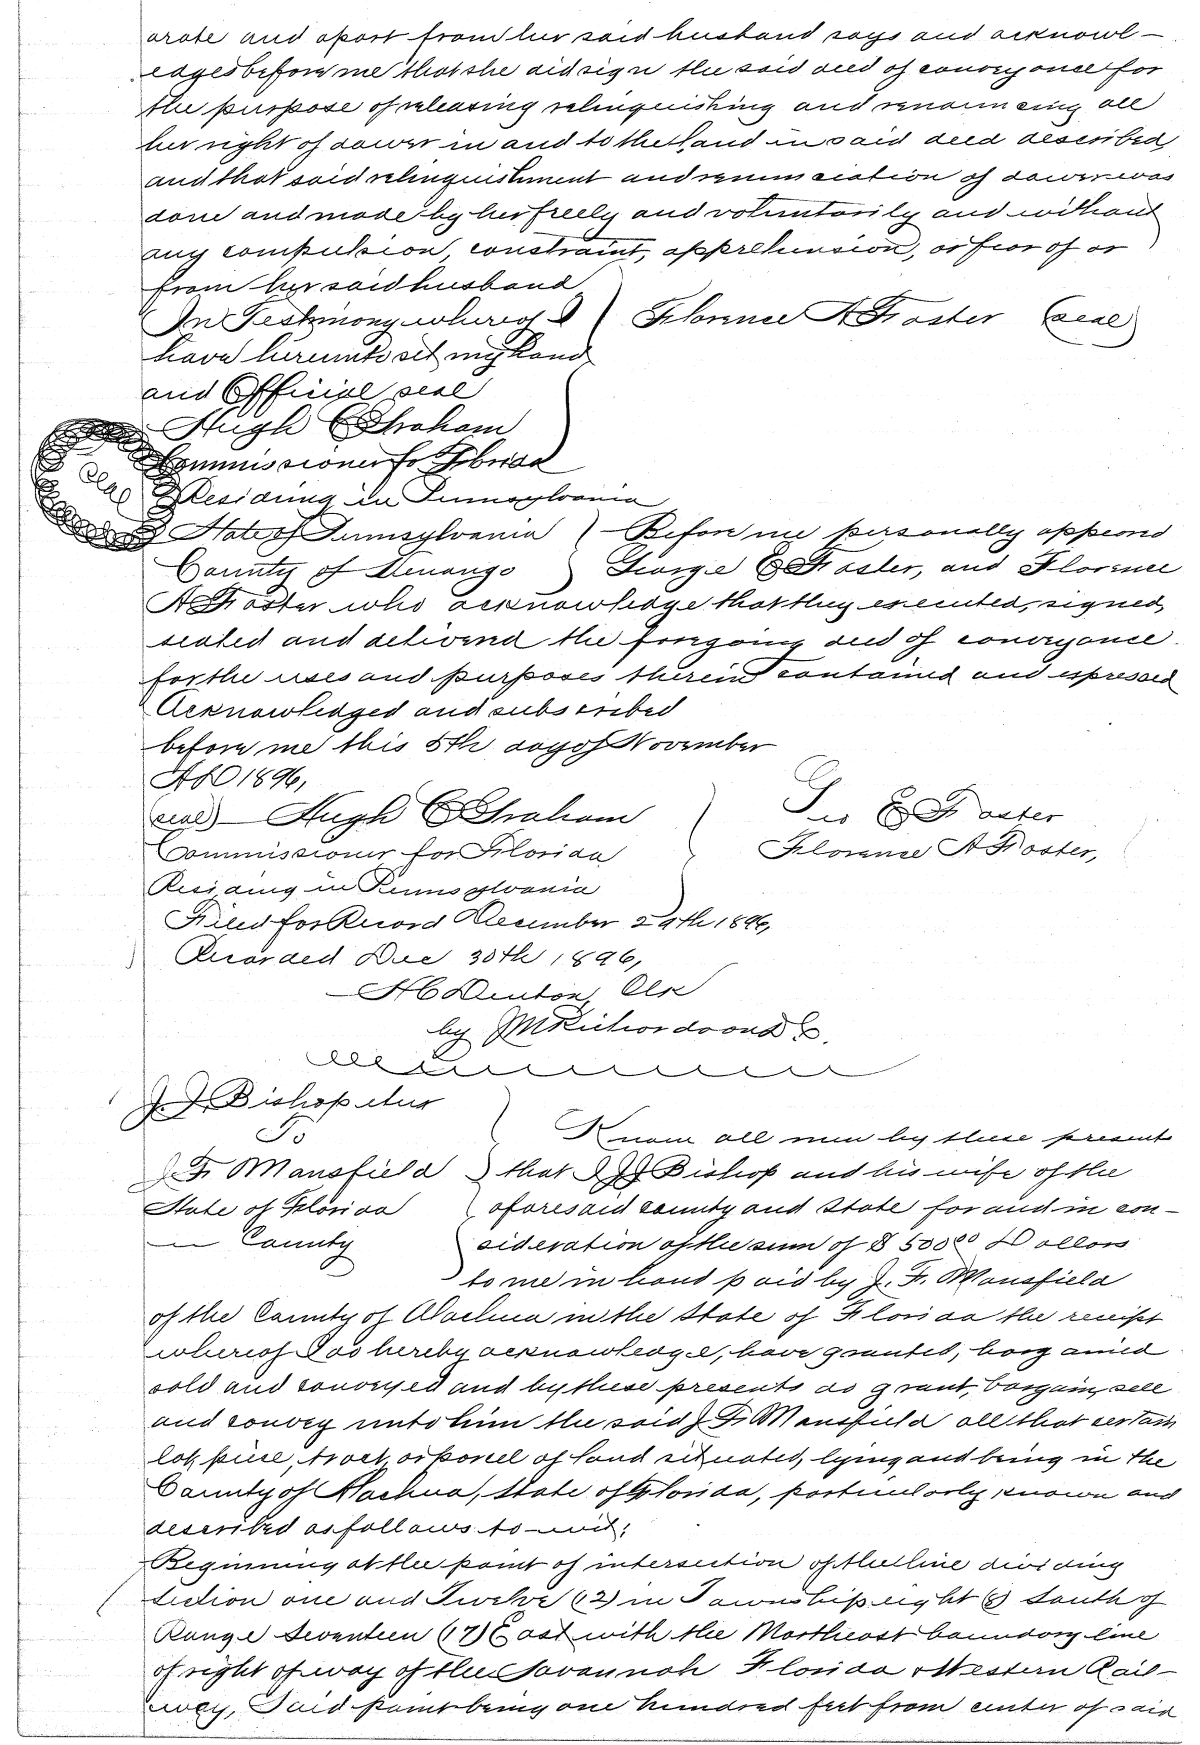 arate and apart from her said husband says and acknowl-
edges before me that she did sign the said deed of conveyance for
the purpose of releasing relinquishing and renouncing all
her right of dower in and to the land in said deed described,
and that said relinquishment and renunciation of dower was
done and made by her freely and voluntarily and without
any compulsion, constraint, apprehension, or fear of or
from her said husband
In Testimony whereof I ) Florence A Foster (seal)
have hereunto set my hand
and Official seal
Hugh C Graham
Commissioner for Florida
Seal Residing in Pennsylvania
State of Pennsylvania ) Before me personally appeared
County of Venango ) George E Foster, and Florence
A Foster who acknowledge that they executed, signed,
sealed and delivered the foregoing deed of conveyance
for the uses and purposes therein contained and expressed
Acknowledged and subscribed
before me this 5th day of November
AD 1896,
(seal) Hugh C Graham ) Geo E Foster
Commissioner for Florida ) Florence A Foster,
Residing in Pennsylvania
Filed for Record December 29th 1896,
Recorded Dec 30th 1896,
H C Denton, Clk
by J M Richardson
J. J. Bishop etux
To ) Know all men by these presents
J. F. Mansfield ) that I J J Bishop and his wife of the
State of Florida ( aforesaid county and State for and in con-
— County ) sideration of the sum of $ 500 00 Dollars
to me in hand paid by J. F. Mansfield
of the County of Alachua in the State of Florida the receipt
whereof I do hereby acknowledge, have granted, bargained
sold and conveyed and by these presents do grant, bargain, sell
and convey unto him the said J F Mansfield all that certain
lot, piece, tract, or parcel of land situated, lying and being in the
County of Alachua, State of Florida, particularly known and
described as follows to-wit;
Beginning at the point of intersection of the line dividing
section one and Twelve (12) in Township eight (8) South of
Range Seventeen (17) East with the Northeast boundary line
of right of way of the Savannah Florida & Western Rail-
way, Said point being one hundred feet from center of said